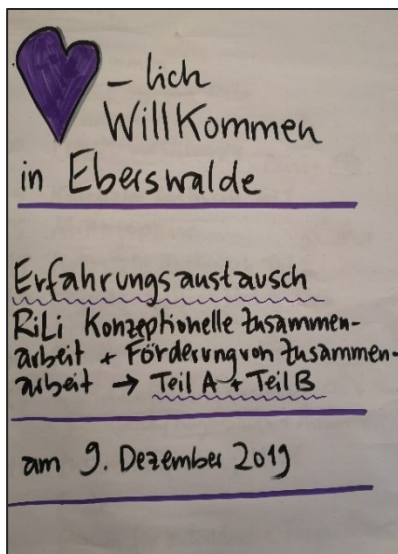 – lich
Willkommen
in Eberswalde
Erfahrungsaustausch
RiLi Konzeptionelle Zusammen-
arbeit + Förderung von Zusammen-
arbeit → Teil A + Teil B
am 9. Dezember 2019